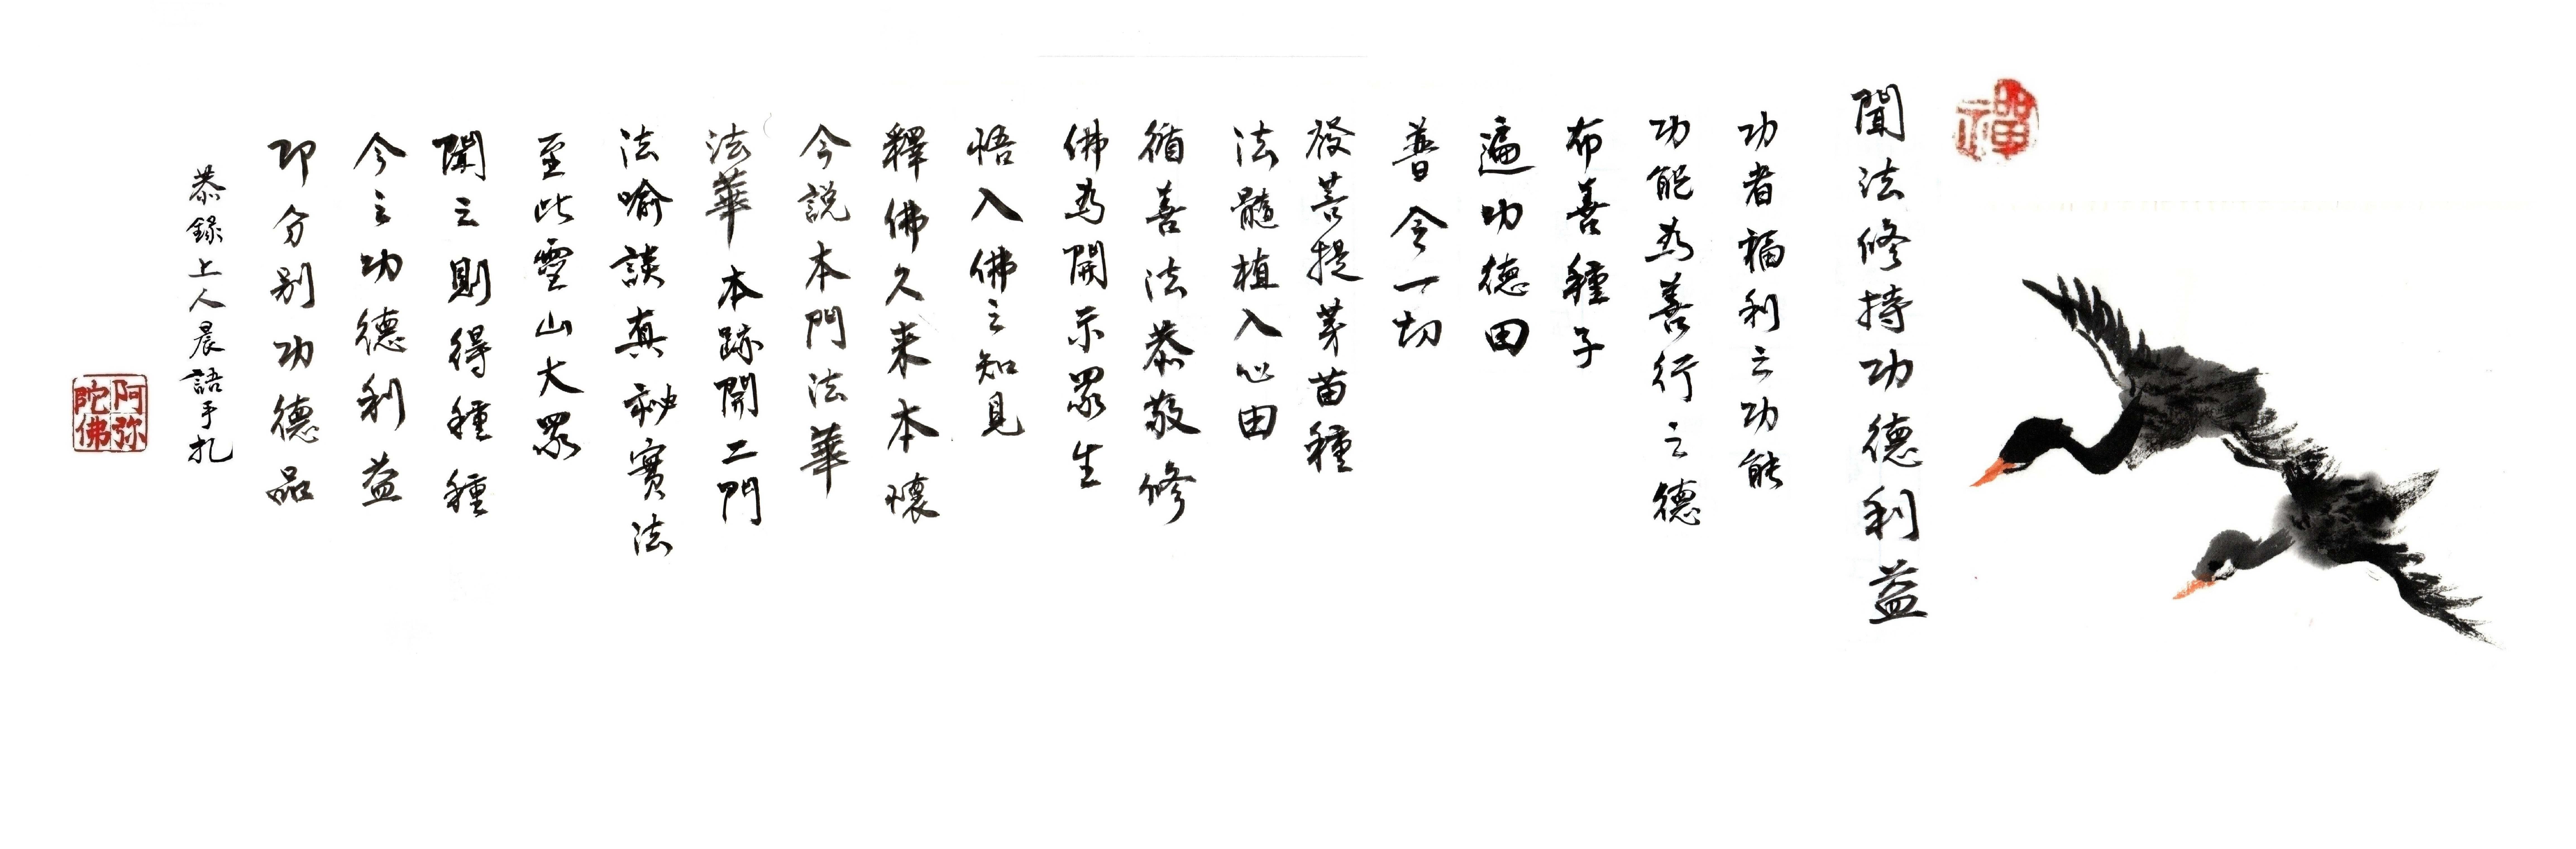 禪
聞法修持功德利益
功者福利之功能
功能為善行之德
布善種子
遍功德田
普令一切
發菩提芽苗種
法髓植入心田
循善法恭敬修
佛為開示眾生
悟入佛之知見
釋佛久來本懷
今說本門法華
法華本跡開二門
法喻談真秘實法
至此靈山大眾
聞之則得種種
今之功德利益
即分別功德品
恭錄上人晨語手札
阿弥
陀佛